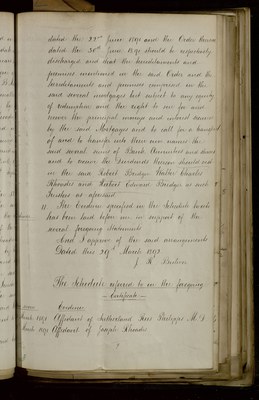 dated the 23rd June 1891 and the Order thereon
dated the 30th June 1891 should be respectively
discharged and that the hereditaments and
premises mentioned in the said Order and the
hereditaments and premises comprised in the
said several mortgages but subject to any equity
of redemption and the right to sue for and
recover the principal money and interest secured
by the said Mortgages and to call for a transfer
of and to transfer into their own names the
said several sums of Bank Annuities and shares
and to receive the Dividends thereon should vest
in the said Robert Bridge Walter Charles
Rhoades and Robert Edward Bridge as such
Trustees as aforesaid
11 The Evidence specified in the Schedule hereto
has been laid before me in support of the
several foregoing statements
And I approve of the said arrangements
Dated this March
The Schedule referred to in the foregoing
Certificate
Evidence
March 1892 Affidavit of Sutherland Rees Phillipps M D
March 1892 Affidavit of Joseph Rhoades